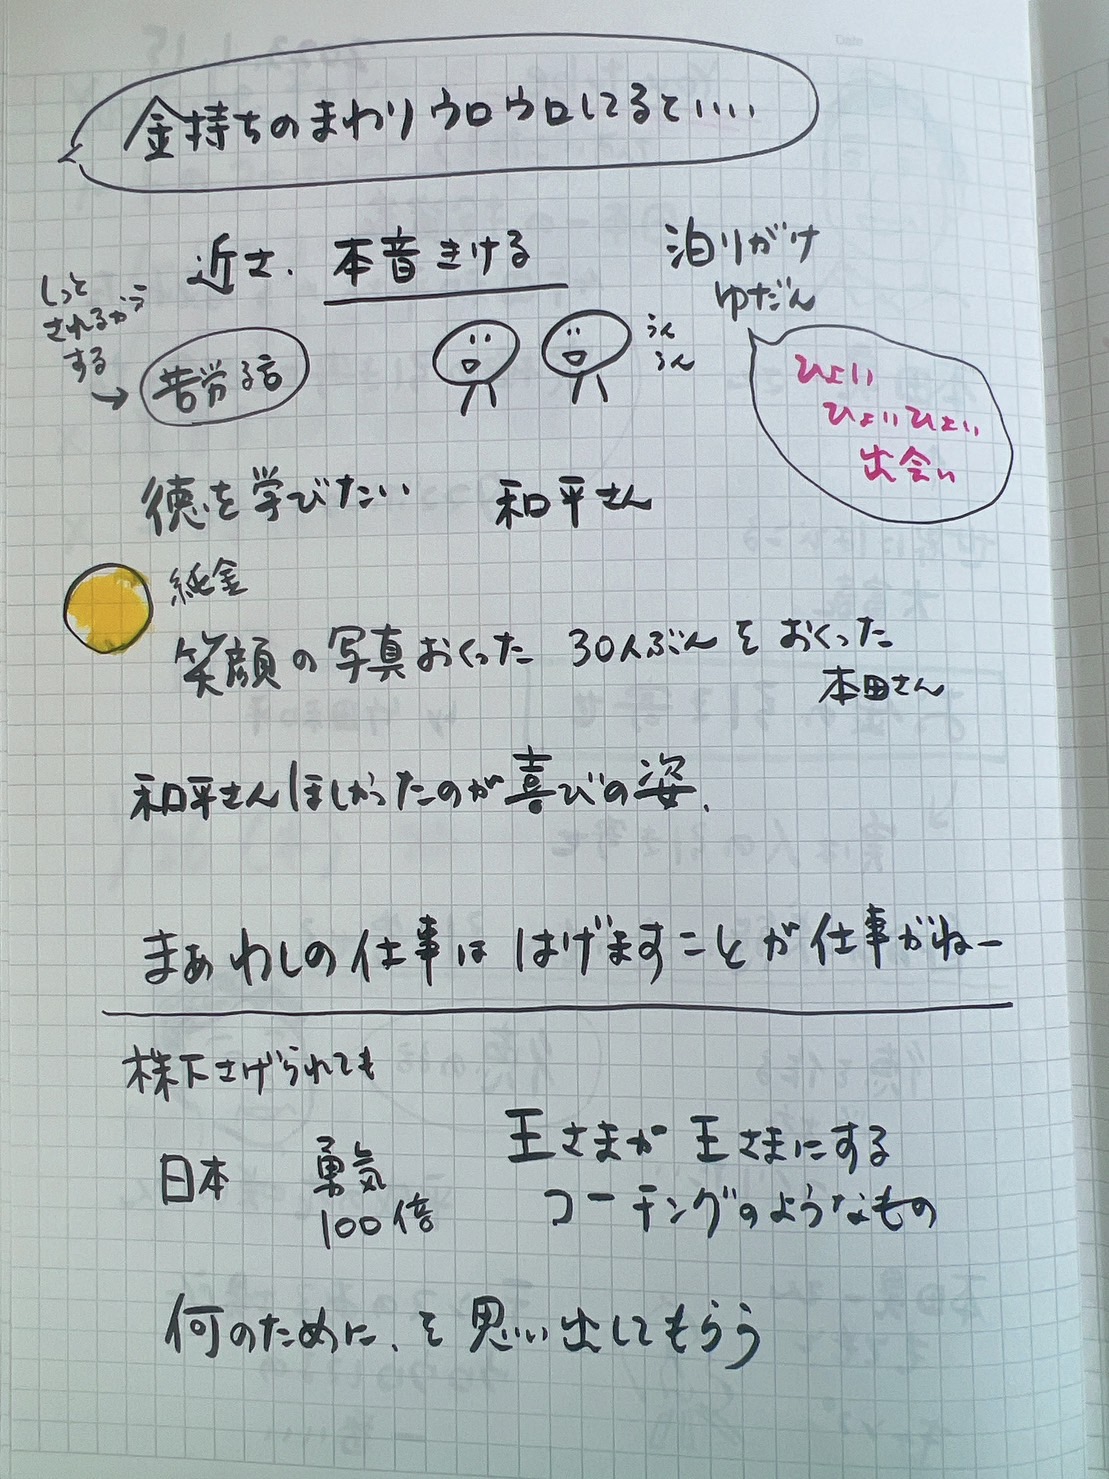 金持ちのまわりウロウロしてるといい
近さ、本音きける
泊りがけ
ゆだん
しっと
されるから
する
→ 苦労話
うん
うん
ひょい
ひょいひょい
出会い
徳を学びたい 和平さん
純金
笑顔の写真おくった 30人ぶんをおくった
本田さん
和平さんほしかったのが喜びの姿、
まあわしの仕事は はげますことが仕事がねー
株下さげられても
日本 勇気
100倍
王さまが王さまにする
コーチングのようなもの
何のために、を思い出してもらう